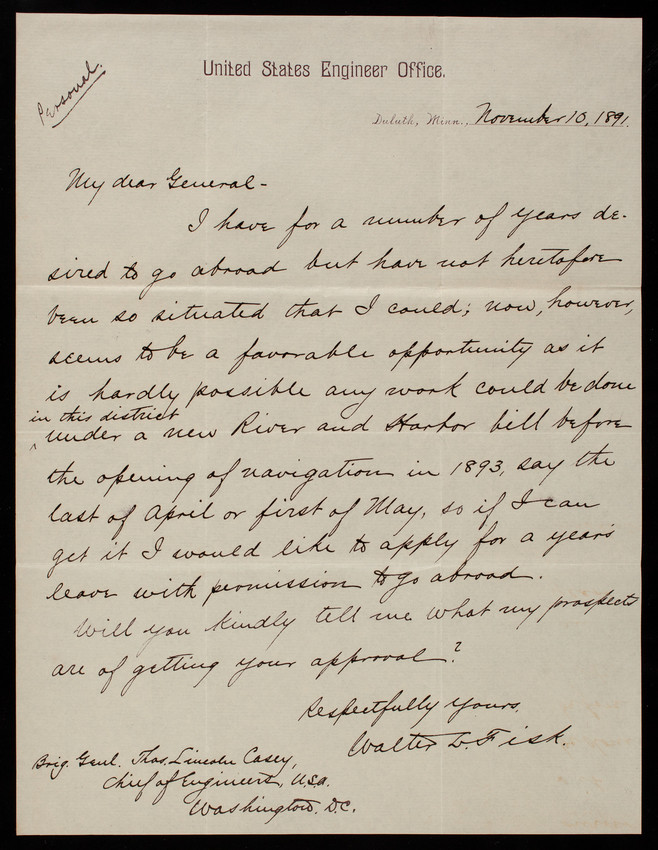 United States Engineer Office.
Personal.
Duluth, Minn., November 10, 1891.
My dear General-
I have for a number of years de-
sired to go abroad but have not heretofore
been so situated that I could; now, however,
seems to be a favorable opportunity as it
is hardly possible any work could be done
in this district
^ under a new River and Harbor bill before
the opening of navigation in 1893, say the
last of April or first of May, so if I can
get it I would like to apply for a year's
leave with permission to go abroad.
Will you kindly tell me what my prospects
are of getting your approval?
Respectfully yours,
Walter L. Fisk.
Brig. Genl. Thos. Lincoln Casey,
Chief of Engineers, U.S.A.
Washington, D.C.